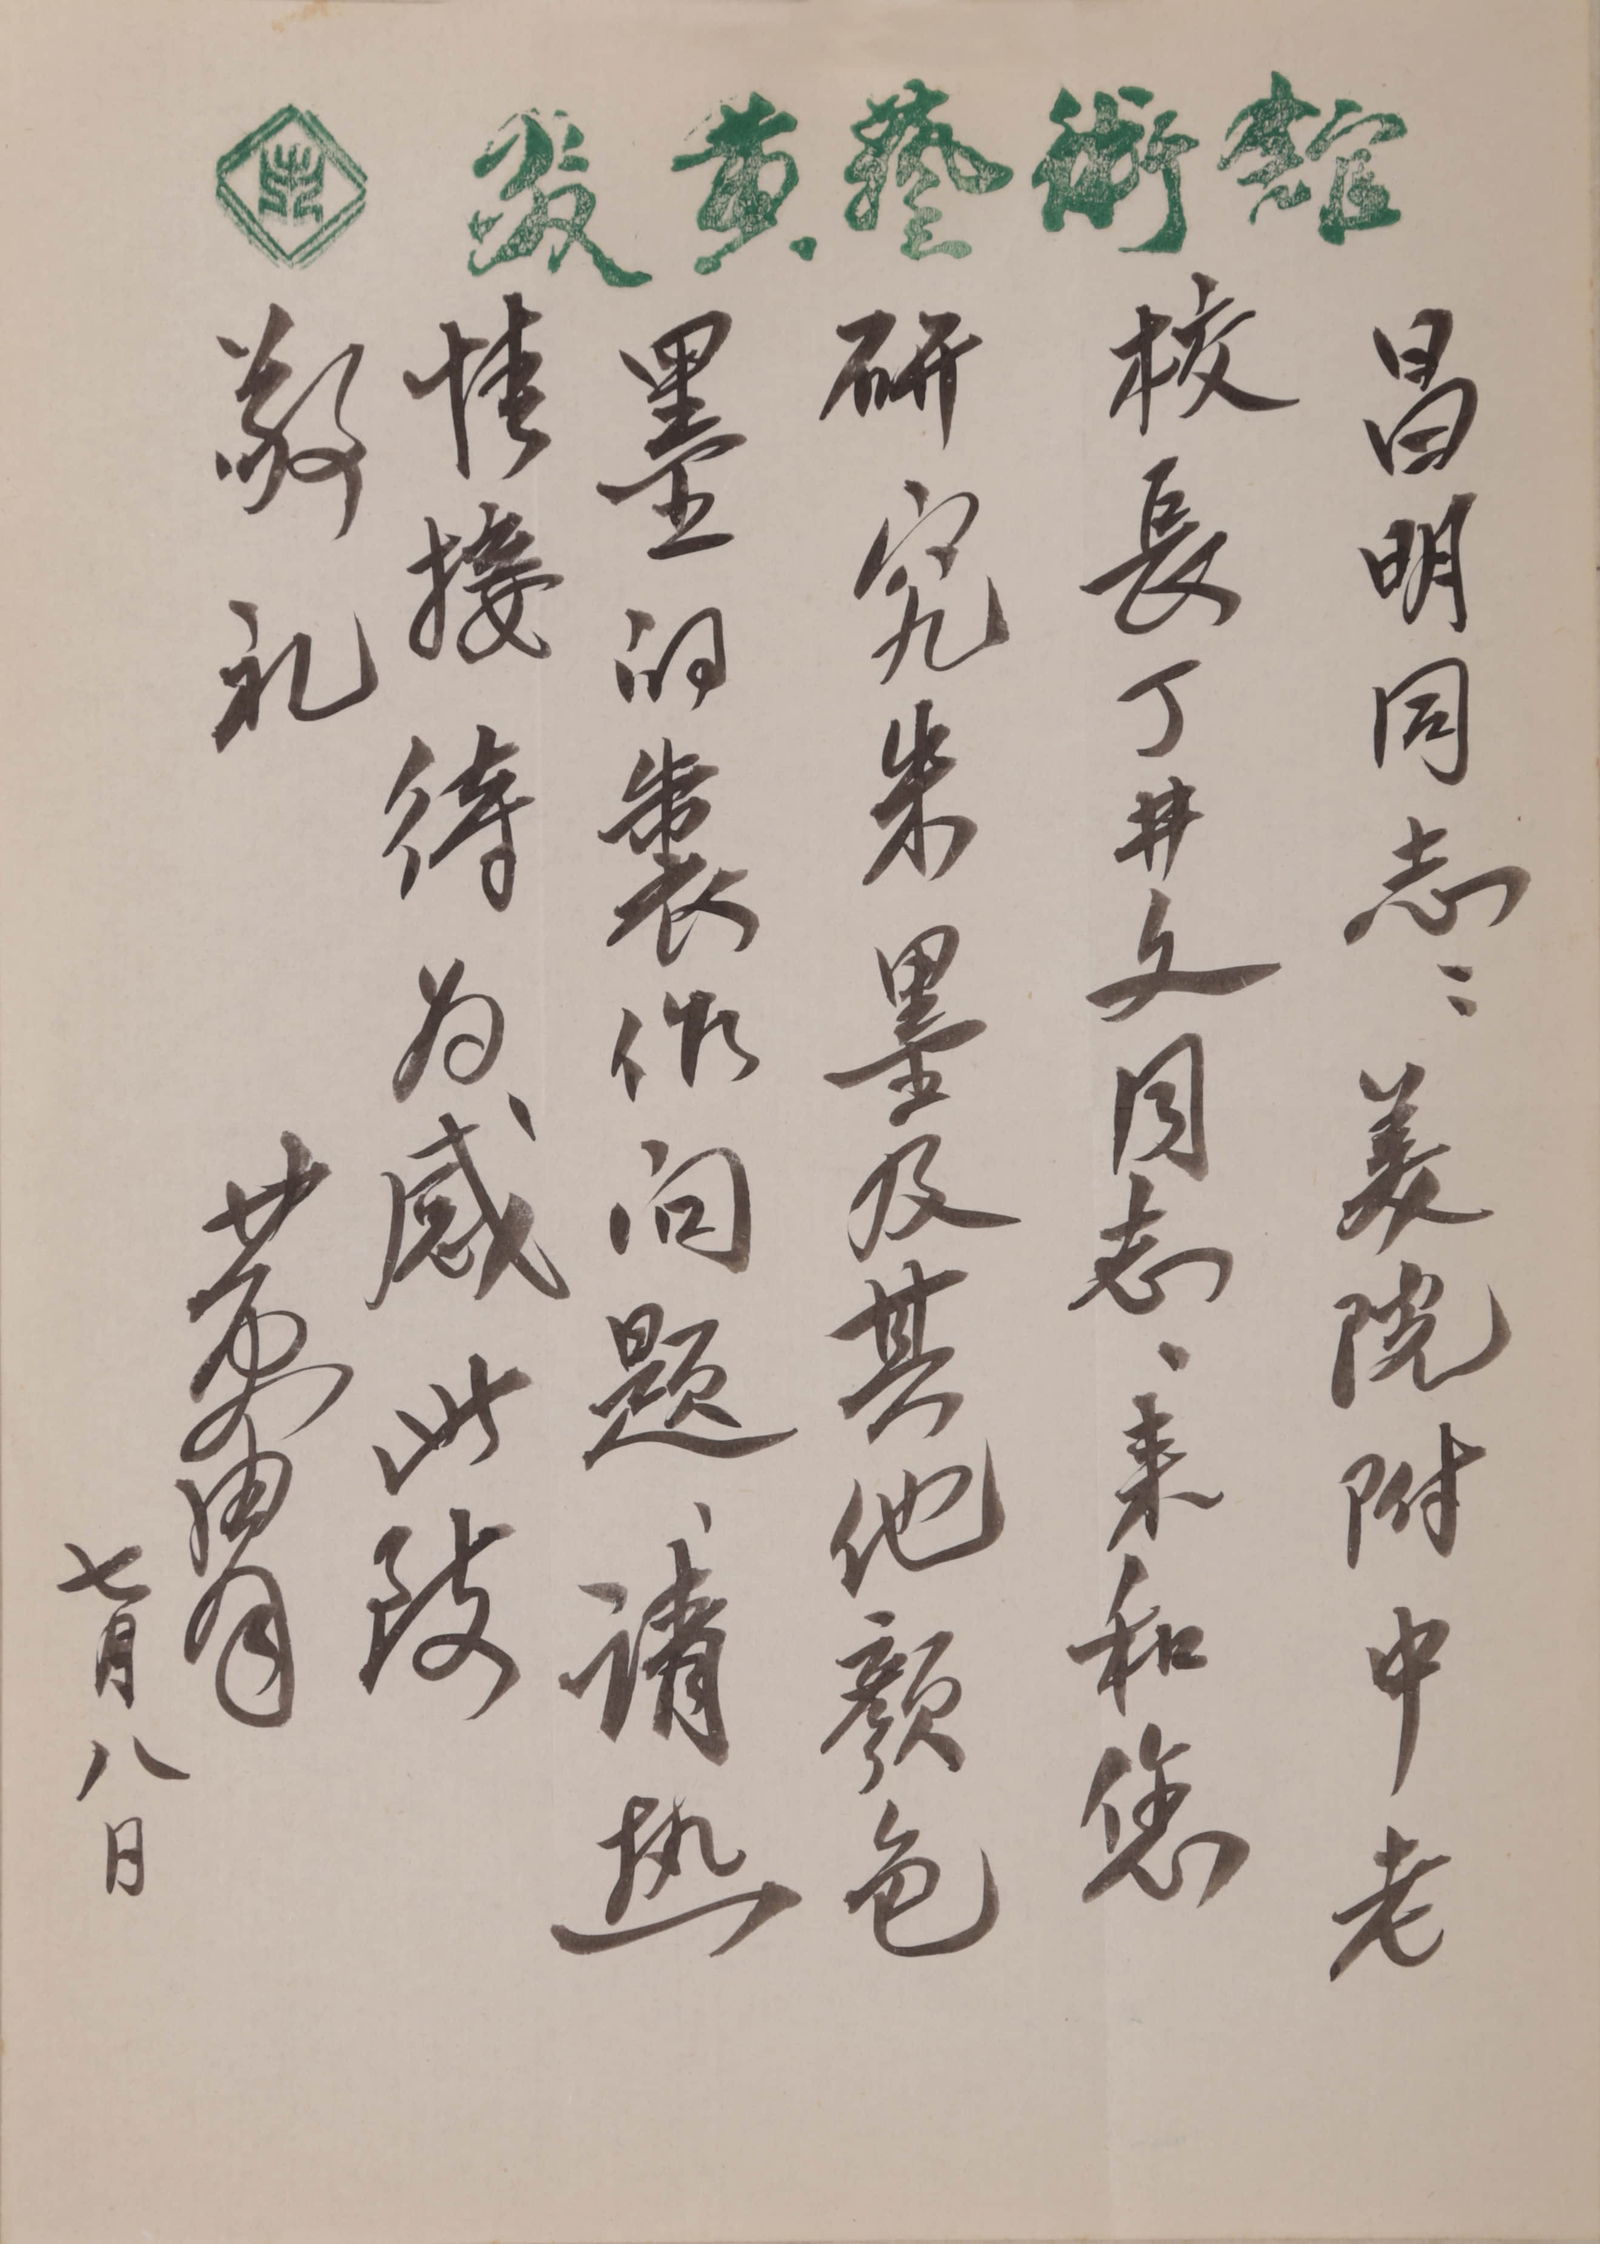 炎黄藝術館
昌明同志：美院附中老
校長丁井文同志、来和您
研究朱墨及其他颜色
墨的製作问题、请热
情接待为感此致
敬礼
黄胄
七月八日